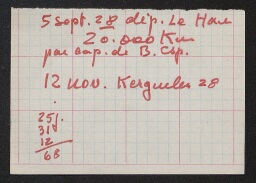 5 sept. 28 dép. Le Havre
20.000 Km
par cap. de B. Esp.
12 nov. Kerguelen 28
25j.
31
12
68